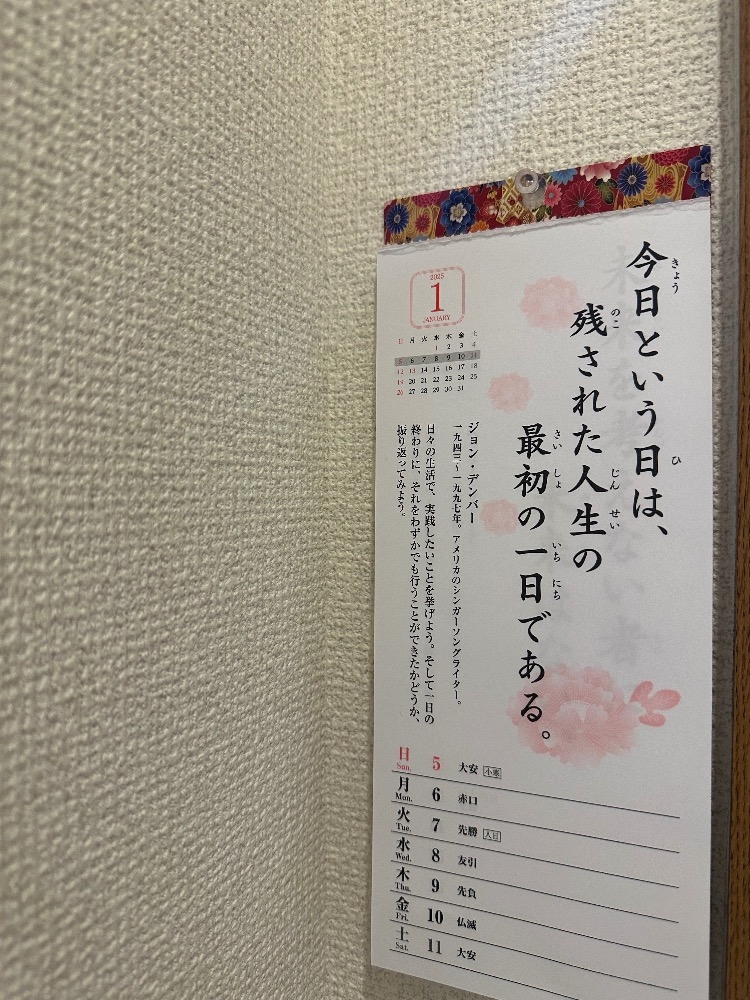 2025
1
JANUARY
日 月 火 水 木 金 土
1 2 3 4
5 6 7 8 9 10 11
12 13 14 15 16 17 18
19 20 21 22 23 24 25
26 27 28 29 30 31
今日という日は、
きょう ひ
残された人生の
のこ じん せい
最初の一日である。
さい しょ いち にち
ジョン・デンバー
一九四三~一九九七年。アメリカのシンガーソングライター。
日々の生活で、実践したいことを挙げよう。そして一日の
終わりに、それをわずかでも行うことができたかどうか、
振り返ってみよう。
日 Sun. 5 大安 小寒
月 Mon. 6 赤口
火 Tue. 7 先勝 人日
水 Wed. 8 友引
木 Thu. 9 先負
金 Fri. 10 仏滅
土 Sat. 11 大安